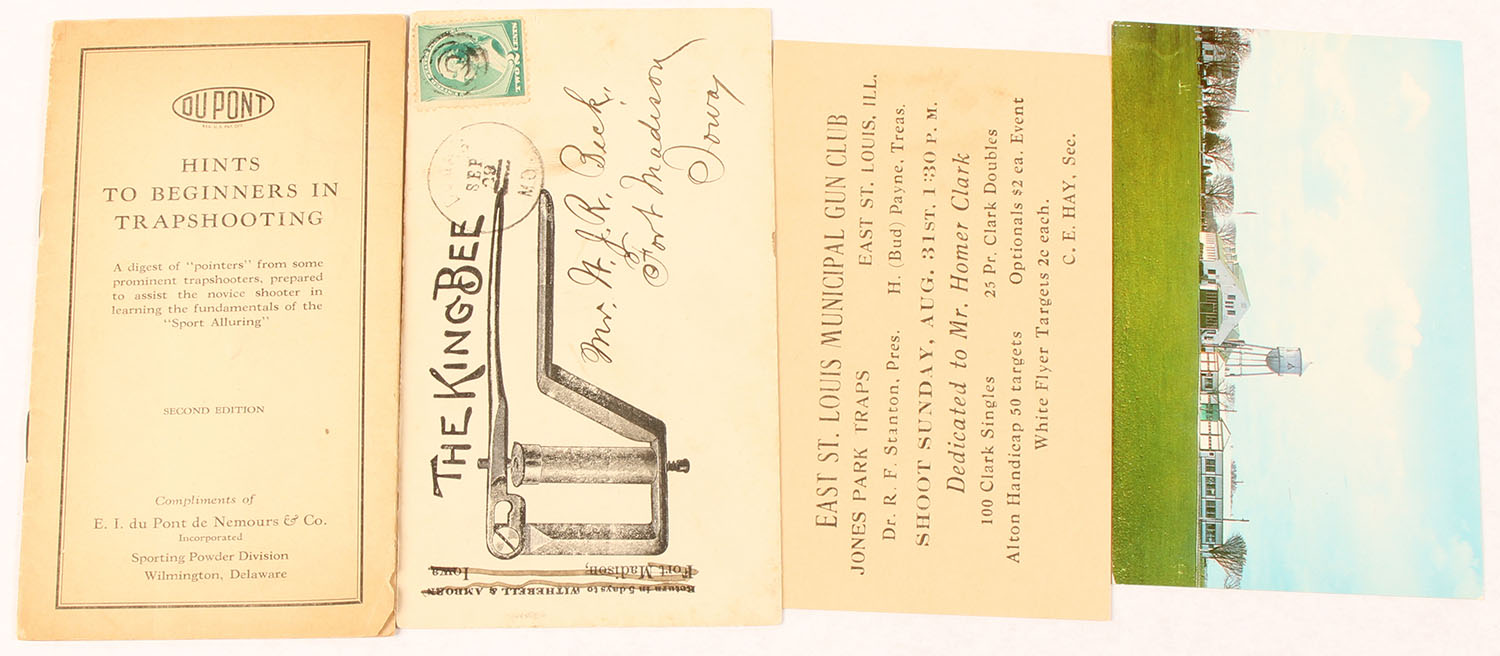 DU PONT
REG. U.S. PAT. OFF.
HINTS
TO BEGINNERS IN
TRAPSHOOTING
A digest of "pointers" from some
prominent trapshooters, prepared
to assist the novice shooter in
learning the fundamentals of the
"Sport Alluring"
SECOND EDITION
Compliments of
E. I. du Pont de Nemours & Co.
Incorporated
Sporting Powder Division
Wilmington, Delaware
SEP
29
MO
THE KING BEE
Mr. W. J. R. Beck,
Fort Madison
Iowa
Return in 5 days to WITHERELL & AMBORN
Fort Madison,
Iowa
EAST ST. LOUIS MUNICIPAL GUN CLUB
JONES PARK TRAPS EAST ST. LOUIS, ILL.
Dr. R. F. Stanton, Pres. H. (Bud) Payne, Treas.
SHOOT SUNDAY, AUG. 31ST, 1:30 P. M.
Dedicated to Mr. Homer Clark
100 Clark Singles 25 Pr. Clark Doubles
Alton Handicap 50 targets Optionals $2 ea. Event
White Flyer Targets 2c each.
C. E. HAY, Sec.